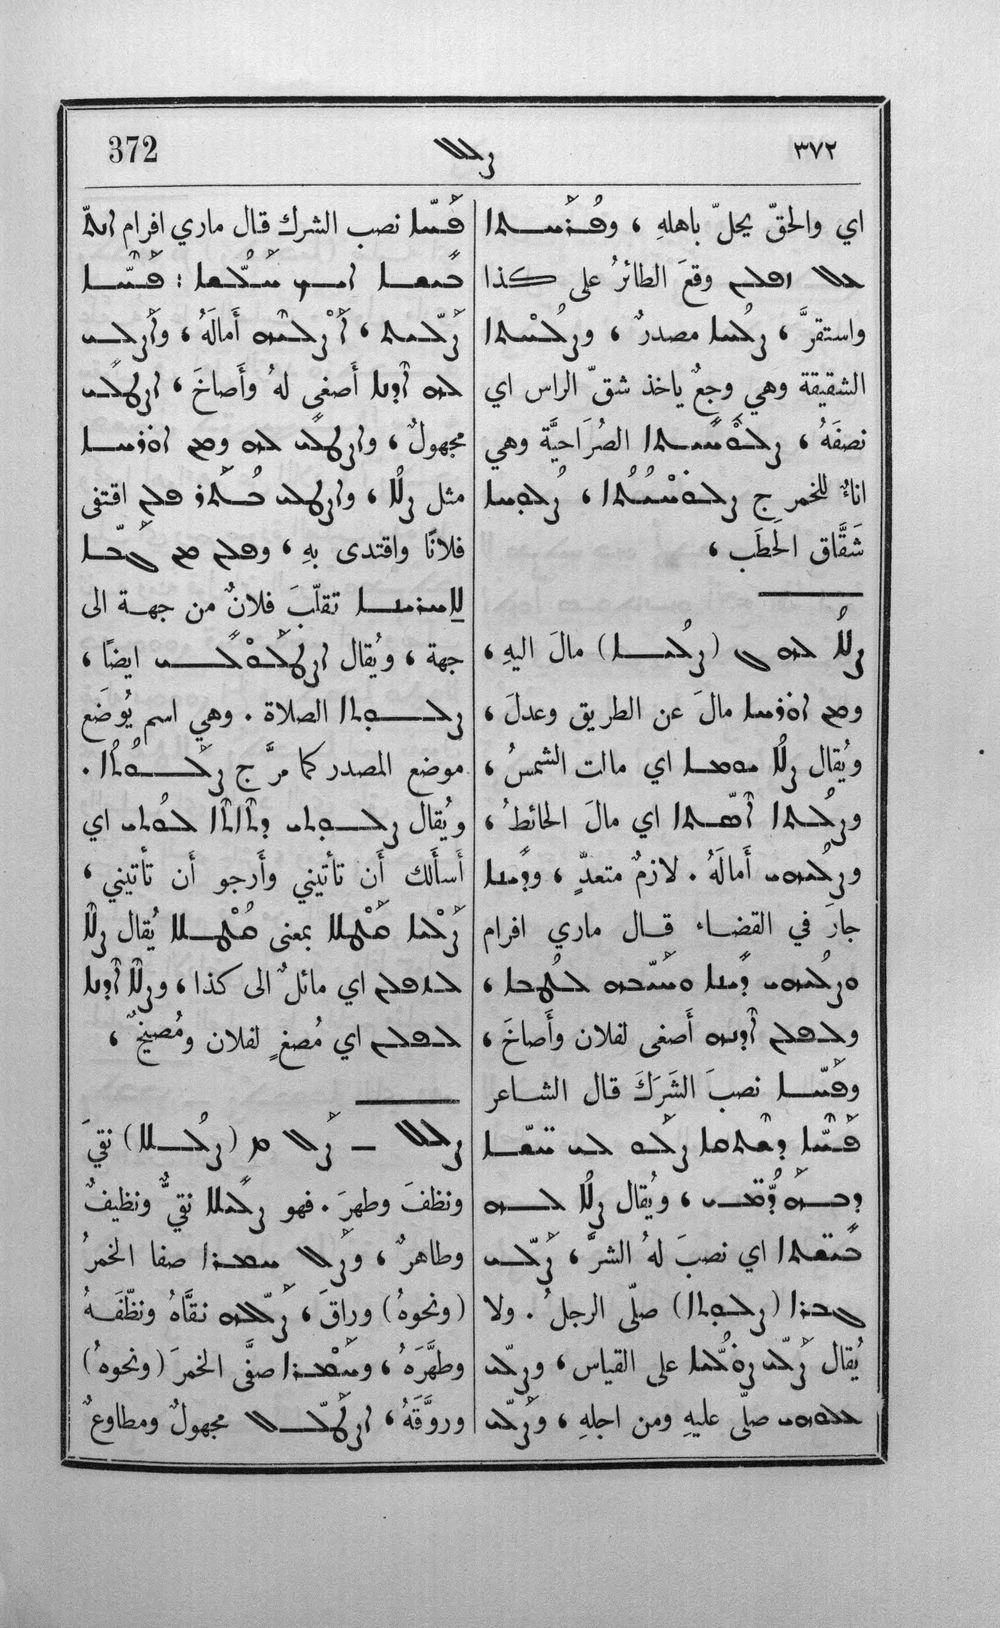 ٣٧٢ ܨܠܠ 372
اي والحقّ يحلّ باهلهِ ،
ܥܠ ܐܦܠܢ وقعَ الطائرُ على كذا
واستقرَّ ، ܨܠܚܐ مصدرٌ ،
الشقيقة وهي وجعٌ ياخذ شقّ الراس اي
نصفَهُ ، ܨܠܘܚܝܬܐ الصُرَاحيَّة وهي
اناءٌ للخمر ج ܨܠܘܚܝܬܐ ، ܨܠܘܚܐ
شَقَّاق الحَطَب ،
ܨܠܐ ܠܗ ܢ (ܨܠܝܐ) مالَ اليهِ ،
ܘܡܢ ܐܘܪܚܐ مالَ عن الطريق وعدلَ ،
ويُقال ܨܠܐ ܝܘܡܐ اي مالت الشمسُ ،
ܘܨܠܬ ܐܣܬܐ اي مالَ الحائطُ ،
ܘܨܠܝܗܝ أَمالَهُ . لازمٌ متعدٍّ ، ܘܕܝܢܐ
جارَ في القضاء قال ماري افرام
ܘܨܠܝܗܝ ܕܝܢܐ ܘܚܝܒܗ ܠܛܒܐ ،
ܘܠܦܠܢ ܐܕܢܗ أَصغى لفلان وأَصاخَ ،
ܘܦܚܐ نصبَ الشَرَكَ قال الشاعر
ܦܚܐ ܕܡܘܬܐ ܨܠܘ ܠܝ ܒܝܫܐ
ويُقال ܨܠܐ ܠܗ
ܒܝܫܬܐ اي نصبَ لهُ الشرَّ ، ܨܠܝ
ܓܒܪܐ (ܨܠܘܬܐ) صلّى الرجلُ . ولا
يُقال ܨܠܝ ܨܘܠܝܐ على القياس ، ܘܨܠܝ
ܥܠܘܗܝ صلّى عليهِ ومن اجلهِ ، ܘܨܠܝ
ܦܚܐ نصب الشرك قال ماري افرام ܐܝܟ
ܦܚܐ
ܨܠܝܬ ، ܐܨܠܝܗ أَمالَهُ ، ܘܐܨܠܝ
ܠܗ ܐܕܢܐ أَصغى لهُ وأَصاخَ ، ܐܨܛܠܝ
مجهولٌ ، ܘܐܨܛܠܝ ܠܗ ܘܡܢ ܐܘܪܚܐ
مثل ܨܠܐ ، ܘܐܨܛܠܝ ܒܬܪ ܦܠܢ اقتفى
فلانًا واقتدى بهِ ، ܘܦܠܢ ܡܢ ܓܒܐ
ܠܐܚܪܢܐ تقلّبَ فلانٌ من جهة الى
جهة ، ويُقال ܐܨܛܠܘܠܝ ايضًا ،
ܨܠܘܬܐ الصلاة . وهي اسم يُوضَع
موضع المصدر كما مرَّ ج ܨܠܘܬܐ .
ويُقال ܨܠܘܬܝ ܕܬܐܬܐ ܠܘܬܝ اي
أَسأَلك أَن تأتيني وأَرجو أَن تأتيني ،
ܨܠܝܐ بمعنى يُقال ܨܠܐ
ܠܦܠܢ اي مائلٌ الى كذا ، ܘܨܠܐ ܐܕܢܐ
ܠܦܠܢ اي مُصغٍ لفلان ومُصيخٌ ،
ܨܠܠ ــ ܨܠ ܡ (ܨܠܠܐ) نقيَ
ونظفَ وطهرَ . فهو ܨܠܝܠܐ نقيٌّ ونظيفٌ
وطاهرٌ ، ܘܨܠ ܚܡܪܐ صفا الخمرُ
(ونحوهُ) وراقَ ، ܨܠܠܗ نقَّاهُ ونظّفَهُ
وطهَّرَهُ ، ܘܚܡܪܐ صفَّى الخمرَ (ونحوهُ)
وروَّقَهُ ، ܐܨܛܠܠ مجهولٌ ومطاوعٌ